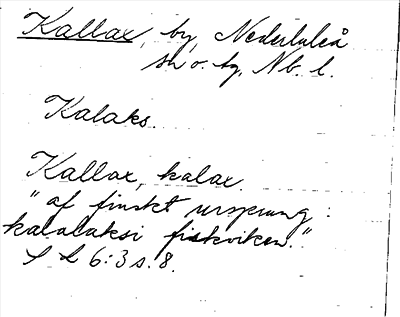 Kallax, by, Nederluleå
sn o. tg, Nb. l.
Kalaks.
Kallax, kalax.
"af finskt ursprung:
kalalaksi fiskviken."
S L 6:3 s. 8.